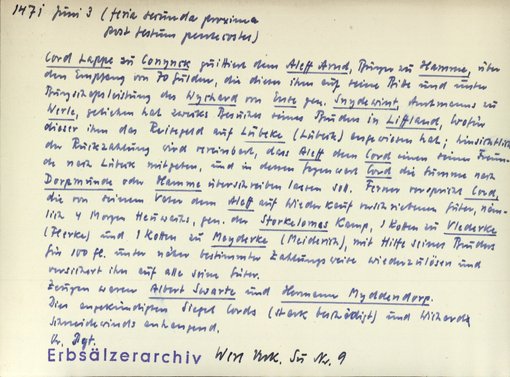 1471 Juni 3 (feria secunda proxima
post festum pentecostes)
Cord Lappe zu Conynck quittiert dem Aleff Arnd, Bürger zu Hamme, über
den Empfang von 70 Gulden, die dieser ihm auf seine Bitte und unter
Bürgschaftsleistung des Wychard von Ense gen. Snydewint, Amtmanns zu
Werle, geliehen hat zwecks Besuches eines Bruders in Liffland, wofür
dieser ihm das Reisegeld auf Lübeke (Lübeck) angewiesen hat; hinsichtlich
der Rückzahlung wird vereinbart, dass Aleff dem Cord einen seiner Freun-
de nach Lübeck mitgeben, und in dessen Gegenwart Cord die Summe nach
Dorpmunde oder Hamme überschreiben lassen soll. Ferner verspricht Cord,
die von seinem Vater dem Aleff auf Wiederkauf verschriebenen Güter, näm-
lich 4 Morgen Heuwachs, gen. der Storkelomes Kamp, 1 Kotten zu Vlederke
(Flerke) und 1 Kotten zu Meyderke (Meiderich), mit Hilfe seines Bruders
für 100 fl. unter näher bestimmter Zahlungsweise wiederzulösen und
versichert ihn auf alle seine Güter.
Zeugen waren Albert Swarte und Hermann Myddendorp.
Das angekündigten Siegel Cords (stark beschädigt) und Wichards
Schneidewinds anhangend.
Or. Pgt.
Erbsälzerarchiv Werl Urk. Su Nr. 9